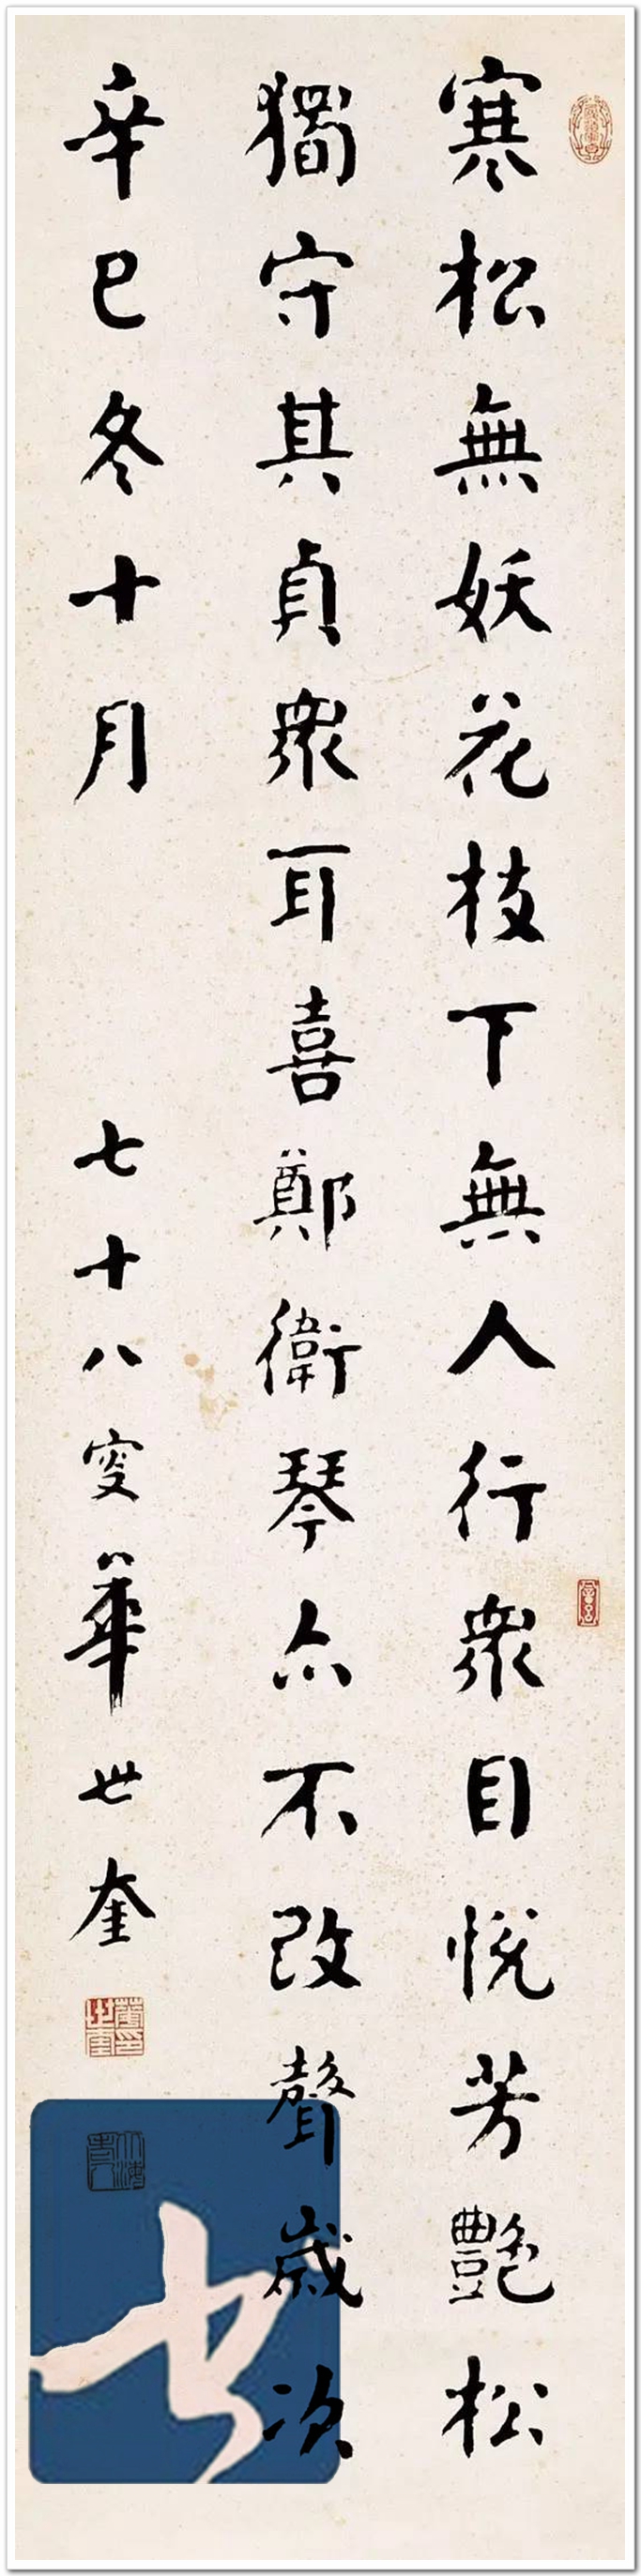 寒松無妖花枝下無人行衆目悅芳艷松
獨守其貞衆耳喜鄭衛琴亦不改聲歲次
辛巳冬十月 七十八叟華世奎